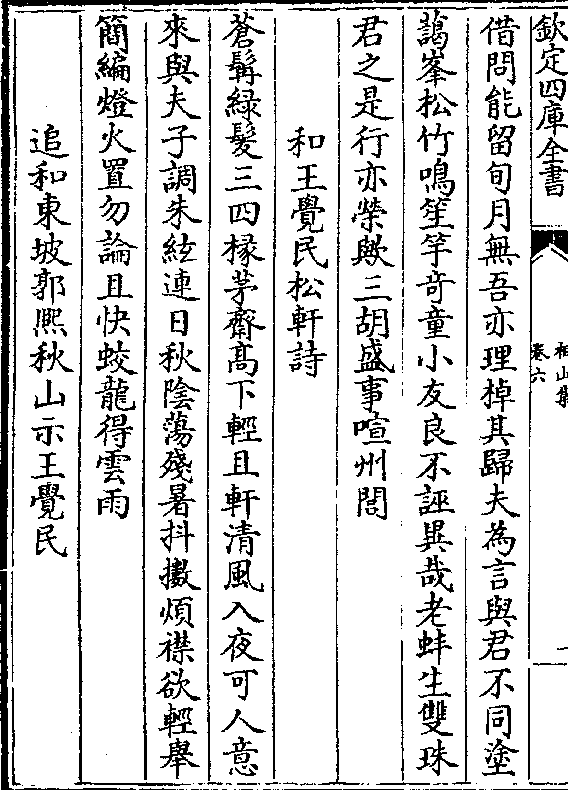 欽定四庫全書
相山集
卷六
借問能留旬月無吾亦理棹其歸夫為言與君不同塗
藹峯松竹鳴笙竽奇童小友良不誣異哉老蚌生雙珠
君之是行亦榮歟三胡盛事喧州閭
和王覺民松軒詩
蒼髯緑髮三四椽茅齋髙下輕且軒清風入夜可人意
來與夫子調朱絃連日秋陰蕩殘暑抖擻煩襟欲輕舉
簡編燈火置勿論且快蛟龍得雲雨
追和東坡郭熈秋山示王覺民